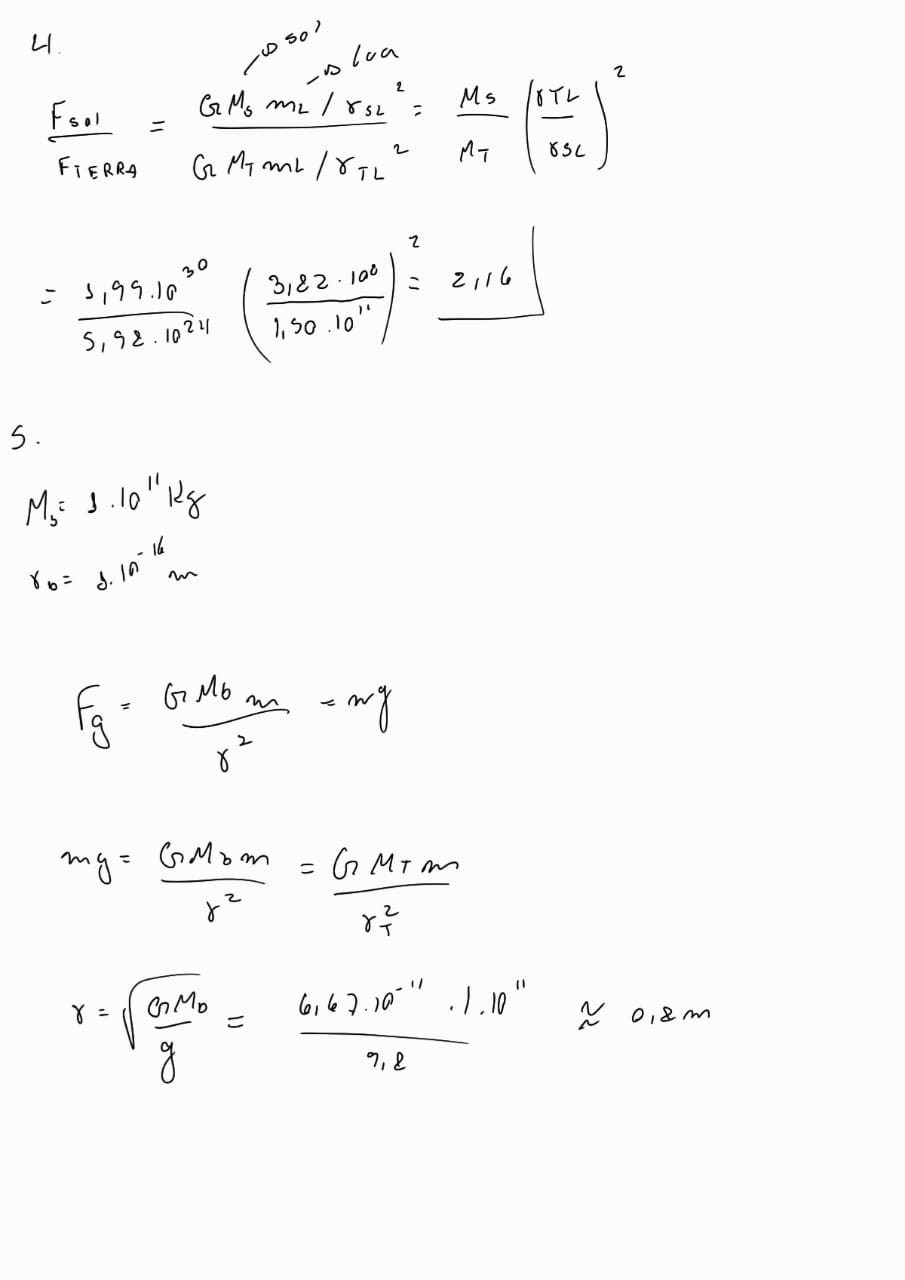 4.
→ sol
→ lua
Fsol / FTIERRA = (G Ms mL / rSL²) / (G MT mL / rTL²) = Ms / MT (rTL / rSL)²
= 1,99.10³⁰ / 5,98.10²⁴ (3,82.10⁸ / 1,50.10¹¹)² = 2,16
5.
Mb = 1.10¹¹ Kg
rb = 1.10⁻¹⁶ m
Fg = G Mb m / r² = mg
mg = G Mb m / r² = G MT m / rT²
r = √(G Mb / g) = 6,67.10⁻¹¹ .1.10¹¹ / 9,8 ≈ 0,8 m